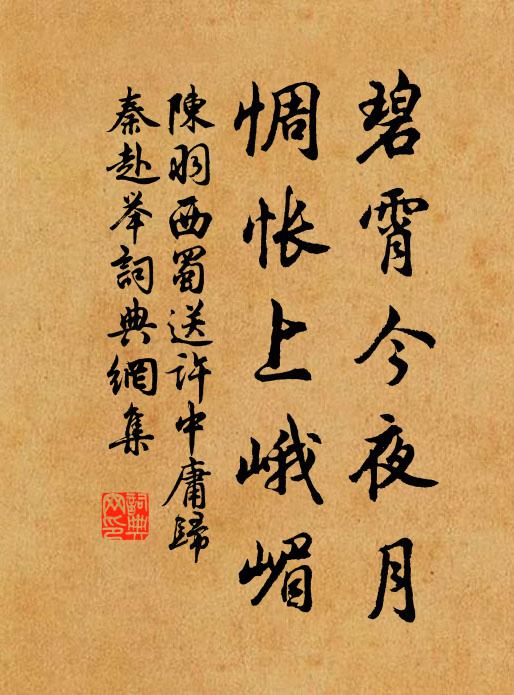 碧霄今夜月
惆怅上峨嵋
陳羽西蜀送許中庸歸
秦赴举詞典網集
詞典网印